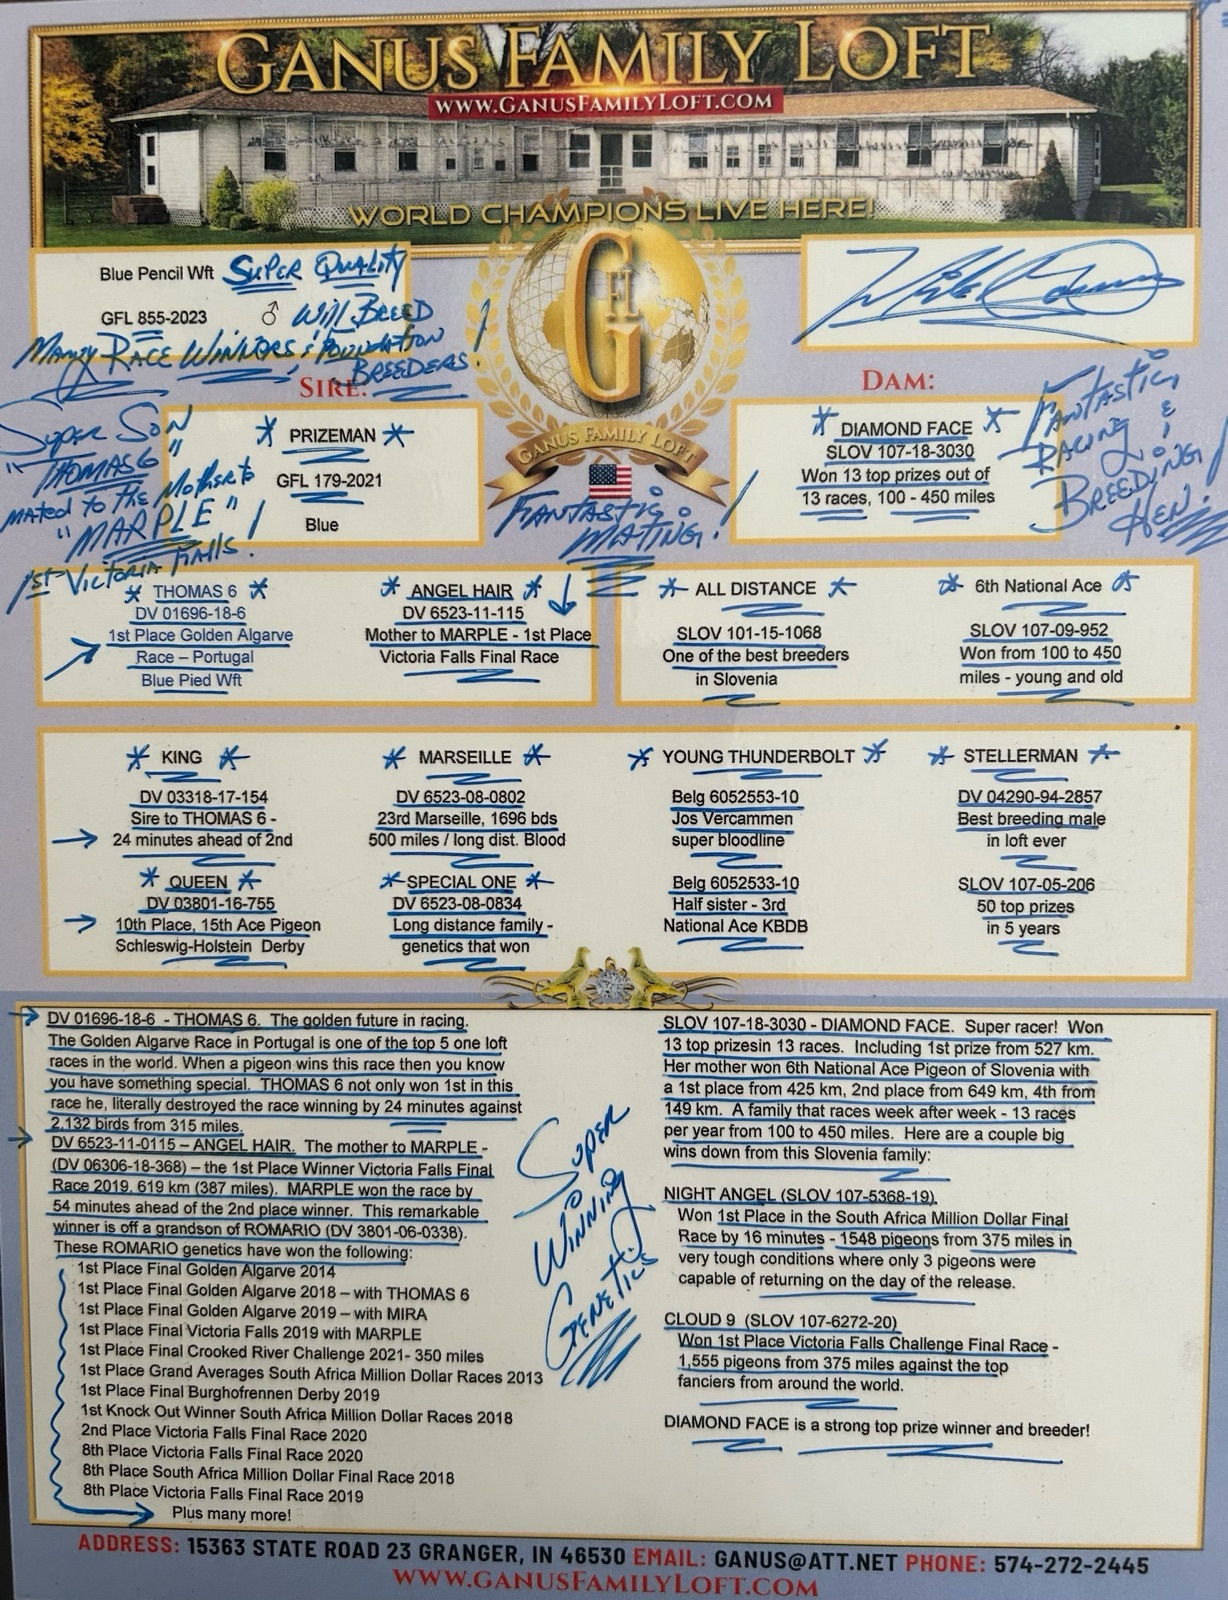 GANUS FAMILY LOFT
WWW.GANUSFAMILYLOFT.COM
WORLD CHAMPIONS LIVE HERE!
Blue Pencil Wft SUPER QUALITY
GFL 855-2023 ♂ WILL BREED
MANY RACE WINNERS & FOUNDATION
BREEDERS!
G
FL
GANUS FAMILY LOFT
SIRE:
DAM:
SUPER SON
"THOMAS 6"
MATED to the MOTHER to
"MARPLE"!
1ST VICTORIA FALLS.
* PRIZEMAN *
GFL 179-2021
Blue
FANTASTIC
MATING!
* DIAMOND FACE *
SLOV 107-18-3030
Won 13 top prizes out of
13 races, 100 - 450 miles
FANTASTIC
RACING &
BREEDING
HEN!
* THOMAS 6 *
DV 01696-18-6
1st Place Golden Algarve
Race – Portugal
Blue Pied Wft
* ANGEL HAIR *
DV 6523-11-115
Mother to MARPLE - 1st Place
Victoria Falls Final Race
* ALL DISTANCE *
SLOV 101-15-1068
One of the best breeders
in Slovenia
* 6th National Ace *
SLOV 107-09-952
Won from 100 to 450
miles - young and old
* KING *
DV 03318-17-154
Sire to THOMAS 6 -
24 minutes ahead of 2nd
* QUEEN *
DV 03801-16-755
10th Place, 15th Ace Pigeon
Schleswig-Holstein Derby
* MARSEILLE *
DV 6523-08-0802
23rd Marseille, 1696 bds
500 miles / long dist. Blood
* SPECIAL ONE *
DV 6523-08-0834
Long distance family -
genetics that won
* YOUNG THUNDERBOLT *
Belg 6052553-10
Jos Vercammen
super bloodline
Belg 6052533-10
Half sister - 3rd
National Ace KBDB
* STELLERMAN *
DV 04290-94-2857
Best breeding male
in loft ever
SLOV 107-05-206
50 top prizes
in 5 years
DV 01696-18-6 - THOMAS 6. The golden future in racing.
The Golden Algarve Race in Portugal is one of the top 5 one loft
races in the world. When a pigeon wins this race then you know
you have something special. THOMAS 6 not only won 1st in this
race he, literally destroyed the race winning by 24 minutes against
2,132 birds from 315 miles.
DV 6523-11-0115 – ANGEL HAIR. The mother to MARPLE -
(DV 06306-18-368) – the 1st Place Winner Victoria Falls Final
Race 2019, 619 km (387 miles). MARPLE won the race by
54 minutes ahead of the 2nd place winner. This remarkable
winner is off a grandson of ROMARIO (DV 3801-06-0338).
These ROMARIO genetics have won the following:
1st Place Final Golden Algarve 2014
1st Place Final Golden Algarve 2018 – with THOMAS 6
1st Place Final Golden Algarve 2019 – with MIRA
1st Place Final Victoria Falls 2019 with MARPLE
1st Place Final Crooked River Challenge 2021- 350 miles
1st Place Grand Averages South Africa Million Dollar Races 2013
1st Place Final Burghofrennen Derby 2019
1st Knock Out Winner South Africa Million Dollar Races 2018
2nd Place Victoria Falls Final Race 2020
8th Place Victoria Falls Final Race 2020
8th Place South Africa Million Dollar Final Race 2018
8th Place Victoria Falls Final Race 2019
Plus many more!
SUPER
WINNING
GENETICS
SLOV 107-18-3030 - DIAMOND FACE. Super racer! Won
13 top prizesin 13 races. Including 1st prize from 527 km.
Her mother won 6th National Ace Pigeon of Slovenia with
a 1st place from 425 km, 2nd place from 649 km, 4th from
149 km. A family that races week after week - 13 races
per year from 100 to 450 miles. Here are a couple big
wins down from this Slovenia family:
NIGHT ANGEL (SLOV 107-5368-19).
Won 1st Place in the South Africa Million Dollar Final
Race by 16 minutes - 1548 pigeons from 375 miles in
very tough conditions where only 3 pigeons were
capable of returning on the day of the release.
CLOUD 9 (SLOV 107-6272-20)
Won 1st Place Victoria Falls Challenge Final Race -
1,555 pigeons from 375 miles against the top
fanciers from around the world.
DIAMOND FACE is a strong top prize winner and breeder!
ADDRESS: 15363 STATE ROAD 23 GRANGER, IN 46530 EMAIL: GANUS@ATT.NET PHONE: 574-272-2445
WWW.GANUSFAMILYLOFT.COM